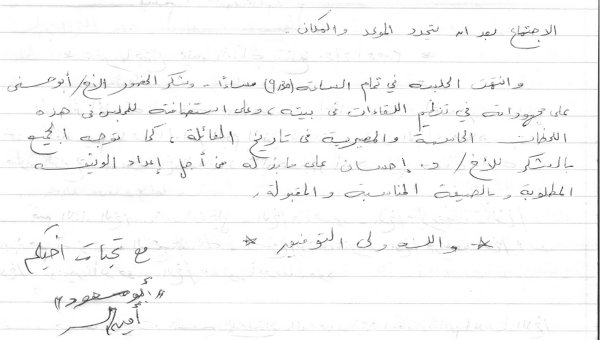 الاجتماع بعد ان يتحدد الموعد والمكان.
وانتهت الجلسة في تمام الساعة (9/30) مساءً. وشكر الحضور الأخ/ أبو حسني
على مجهوداته في تنظيم اللقاءات في بيته، وعلى استضافته للمجلس في هذه
اللحظات الحاسمة والمصيرية في تاريخ العائلة، كما توجه الجميع
بالشكر للأخ/ د. إحسان على ما بذله من أجل إعداد الوثيقة
المطلوبة وبالصيغة المناسبة والمقبولة.
* والله ولي التوفيق *
مع تحيات أخيكم
"أبو مسعود"
أمين السر